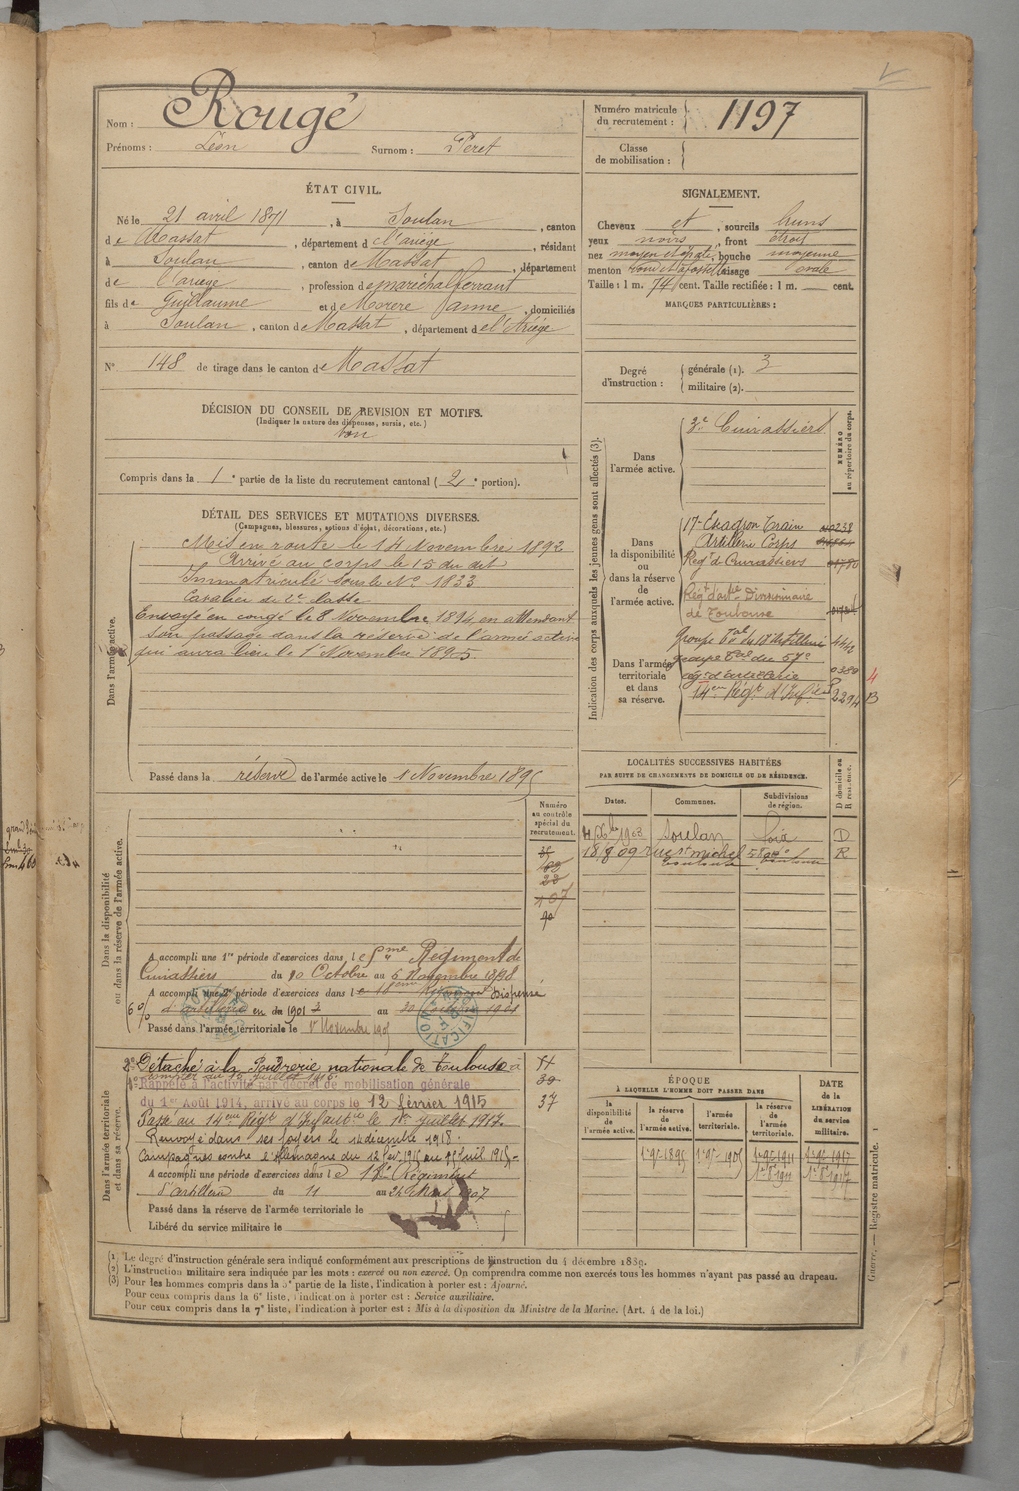 Nom : Rougé
Prénoms : Léon Surnom : Péret
Numéro matricule du recrutement : 1197
Classe de mobilisation :
ÉTAT CIVIL.
Né le 21 avril 1871, à Soulan, canton
de Massat, département de l'ariège, résidant
à Soulan, canton de Massat, département
de l'ariège, profession de maréchal ferrant
fils de Guillaume et de Morère Janne, domiciliés
à Soulan, canton de Massat, département de l'Ariège
N° 148 de tirage dans le canton de Massat
SIGNALEMENT.
Cheveux et, sourcils bruns
yeux noirs, front étroit
nez moyen et épaté, bouche moyenne
menton rond et à fossette, visage ovale
Taille : 1 m. 74 cent. Taille rectifiée : 1 m. cent.
MARQUES PARTICULIÈRES :
Degré d'instruction : générale (1). 3
militaire (2).
DÉCISION DU CONSEIL DE REVISION ET MOTIFS.
(Indiquer la nature des dispenses, sursis, etc.)
bon
Compris dans la 1e partie de la liste du recrutement cantonal (2e portion).
DÉTAIL DES SERVICES ET MUTATIONS DIVERSES.
(Campagnes, blessures, actions d'éclat, décorations, etc.)
Dans l'armée active.
Mis en route le 14 Novembre 1892
Arrivé au corps le 15 du dit
Immatriculé sous le N° 1833
Cavalier de 2e classe
Envoyé en congé le 8 Novembre 1894, en attendant
son passage dans la réserve de l'armée active
qui aura lieu le 1er Novembre 1895
Passé dans la réserve de l'armée active le 1 Novembre 1895
Indication des corps auxquels les jeunes gens sont affectés (3).
NUMÉRO au répertoire du corps.
Dans l'armée active.
3e Cuirassiers
Dans la disponibilité ou dans la réserve de l'armée active.
17e Escadron Train 238
Artillerie Corps
Régt de Cuirassiers 01780
Régt d'artie Divisionnaire
de Toulouse
Dans l'armée territoriale et dans sa réserve.
groupe Tal du 18e artillerie 4446
groupe Tal du 57e
rég. d'artillerie 0380 4
14eme Régt d'Infie 2294 B
LOCALITÉS SUCCESSIVES HABITÉES
PAR SUITE DE CHANGEMENTS DE DOMICILE OU DE RÉSIDENCE.
Dates. Communes. Subdivisions de région. D domicile ou R résidence.
1903 Soulan Foix D
18/8 09 rue St michel 58 R
Toulouse Toulouse
Dans la disponibilité ou dans la réserve de l'armée active.
Numéro au contrôle spécial du recrutement.
20
107
90
A accompli une 1re période d'exercices dans le Régiment de
Cuirassiers du 10 Octobre au 6 Novembre 1898
A accompli une 2e période d'exercices dans le 18eme Régiment Dispensé
d'artillerie en 1901 au 1901
Passé dans l'armée territoriale le 1er Novembre 1905
Dans l'armée territoriale et dans sa réserve.
2° Détaché à la Poudrerie nationale de Toulouse à
compter du 16 Juillet 1915
1° Rappelé à l'activité par décret de mobilisation générale
du 1er Août 1914, arrivé au corps le 12 février 1915
Passé au 14eme Régt d'Infanterie le 1er juillet 1917
Renvoyé dans ses foyers le 14 décembre 1918.
Campagnes contre l'Allemagne du 12 fév 1915 au 15 Juil 1915
A accompli une période d'exercices dans le 18e Régiment
d'artillerie du 11 au 24 Mars 1907
Passé dans la réserve de l'armée territoriale le
Libéré du service militaire le
37
ÉPOQUE
À LAQUELLE L'HOMME DOIT PASSER DANS
la disponibilité de l'armée active. la réserve de l'armée active. l'armée territoriale. la réserve de l'armée territoriale.
DATE de la LIBÉRATION du service militaire.
1-9bre-1895 1-9bre-1905 1-9bre-1911 1-9bre-1917
1-8bre-1911 1-8bre-1917
(1) Le degré d'instruction générale sera indiqué conformément aux prescriptions de l'instruction du 4 décembre 1889.
(2) L'instruction militaire sera indiquée par les mots : exercé ou non exercé. On comprendra comme non exercés tous les hommes n'ayant pas passé au drapeau.
(3) Pour les hommes compris dans la 5e partie de la liste, l'indication à porter est : Ajourné.
Pour ceux compris dans la 6e liste, l'indication à porter est : Service auxiliaire.
Pour ceux compris dans la 7e liste, l'indication à porter est : Mis à la disposition du Ministre de la Marine. (Art. 4 de la loi.)
Guerre. — Registre matricule. 1